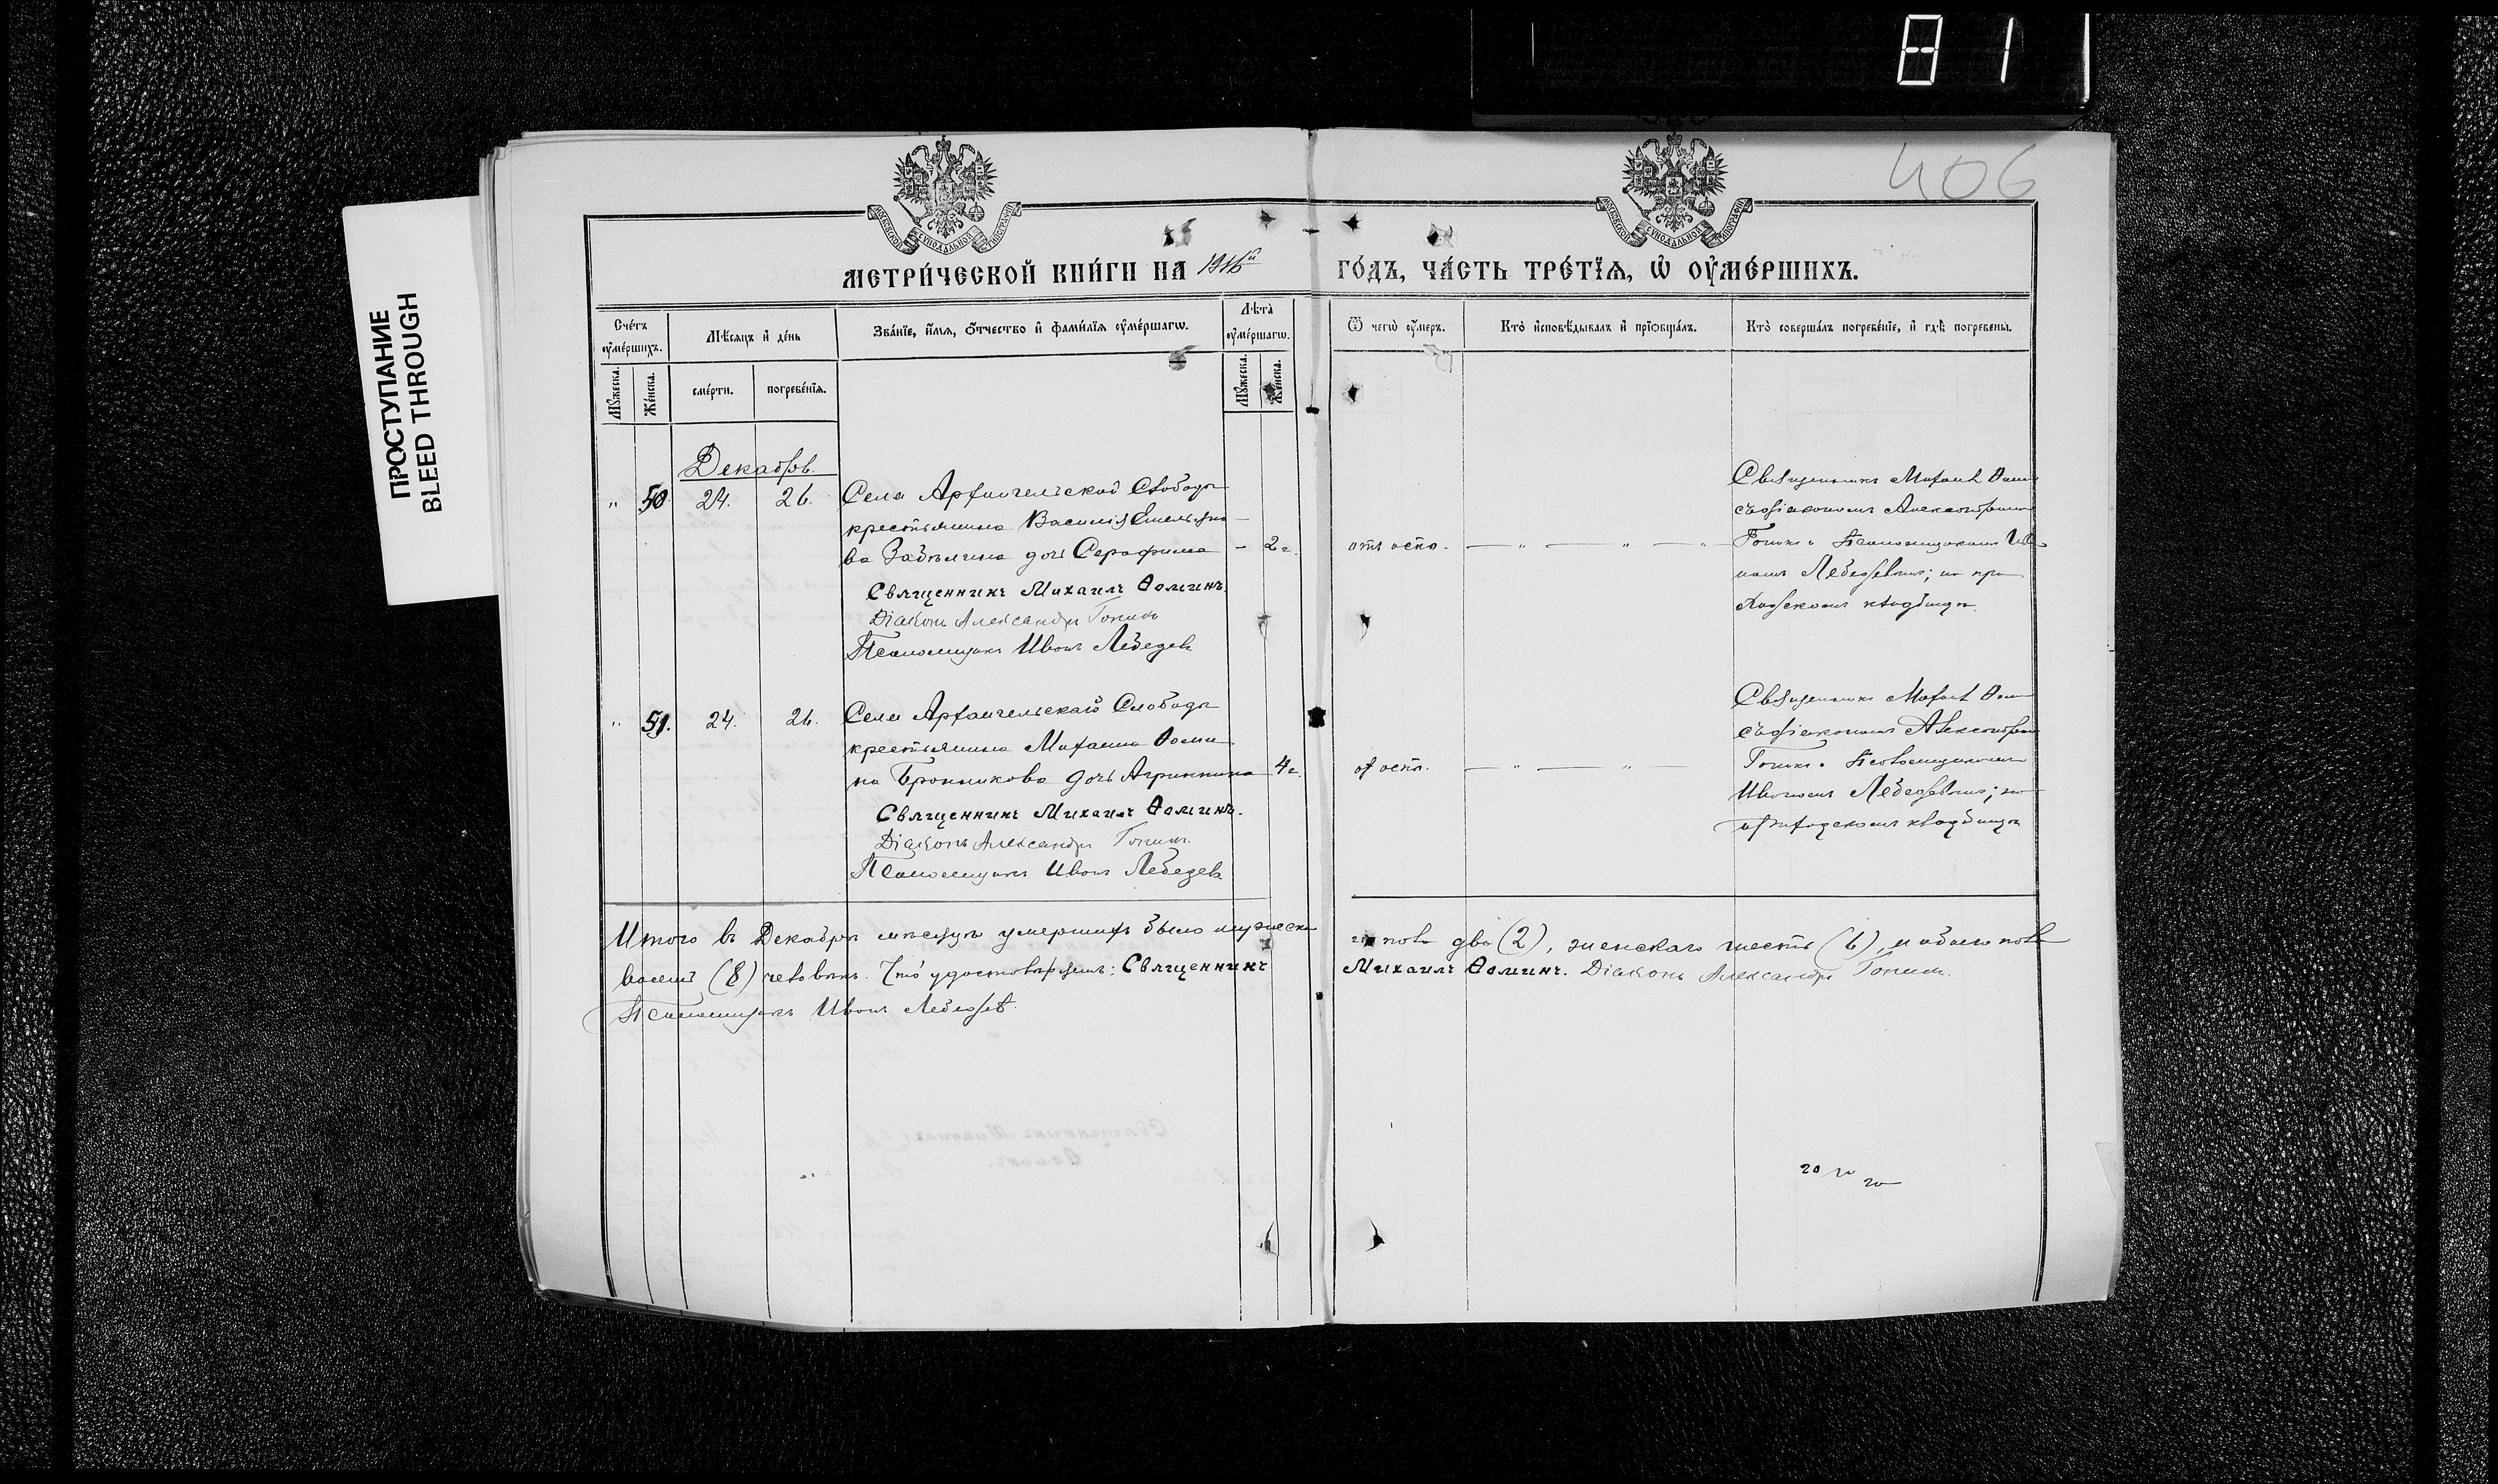 81
ПРОСТУПАНИЕ
BLEED THROUGH
406
МОСКОВСКОЙ СѴНОДАЛЬНОЙ ТИПОГРАФІИ
МОСКОВСКОЙ СѴНОДАЛЬНОЙ ТИПОГРАФІИ
МЕТРИ́ЧЕСКОЙ КНИ́ГИ НА 1916й ГО́ДЪ, ЧА́СТЬ ТРЕ́ТЇѦ, Ѡ҆ ОУ҆МЕ́РШИХЪ.
Сче́тъ оу҆ме́ршихъ.
Мꙋ́жеска.
Же́нска.
Мѣ́сѧцъ и҆ де́нь
сме́рти.
погребе́нїѧ.
Зва́нїе, и҆́мѧ, ѻ҆́тчество и҆ фами́лїѧ оу҆ме́ршагѡ.
Лѣ́та оу҆ме́ршагѡ.
Мꙋ́жеска.
Же́нска.
Ѿ чегѡ̀ оу҆́меръ.
Кто̀ и҆сповѣ́дывалъ и҆ прїѡбща́лъ.
Кто̀ соверша́лъ погребе́нїе, и҆ гдѣ̀ погребены̀.
Декабрь.
" 50 24. 26. Села Архангельской Слободы
крестьянина Василія Емельяно-
ва Забѣлина дочь Серафима - 2 г. отъ оспы.
Священникъ Михаилъ Ѳоминъ.
Діаконъ Александръ Тонинъ
Псаломщикъ Иванъ Лебедевъ
Священникъ Михаилъ Ѳоминъ
съ діакономъ Александромъ
Псаломщикомъ Ива-
номъ Лебедевымъ; на при-
ходскомъ кладбищѣ.
" 51. 24. 26. Села Архангельскаго Слободы
крестьянина Михаила Ѳоми-
на Бронникова дочь Агриппина 4 г. от оспы.
Священникъ Михаилъ Ѳоминъ.
Діаконъ Александръ Тонинъ.
Псаломщикъ Иванъ Лебедевъ
Священникъ Михаилъ Ѳоминъ
съ діакономъ Александромъ
Псаломщикомъ
Иваномъ Лебедевымъ; на
приходскомъ кладбищѣ
Итого въ Декабрѣ мѣсяцѣ умершихъ было мужеска-
го пола два (2), женскаго шесть (6), и обоего пола
восемь (8) человѣкъ. Что удостовѣряемъ: Священникъ
Михаилъ Ѳоминъ. Діаконъ Александръ Тонинъ.
Псаломщикъ Иванъ Лебедевъ.